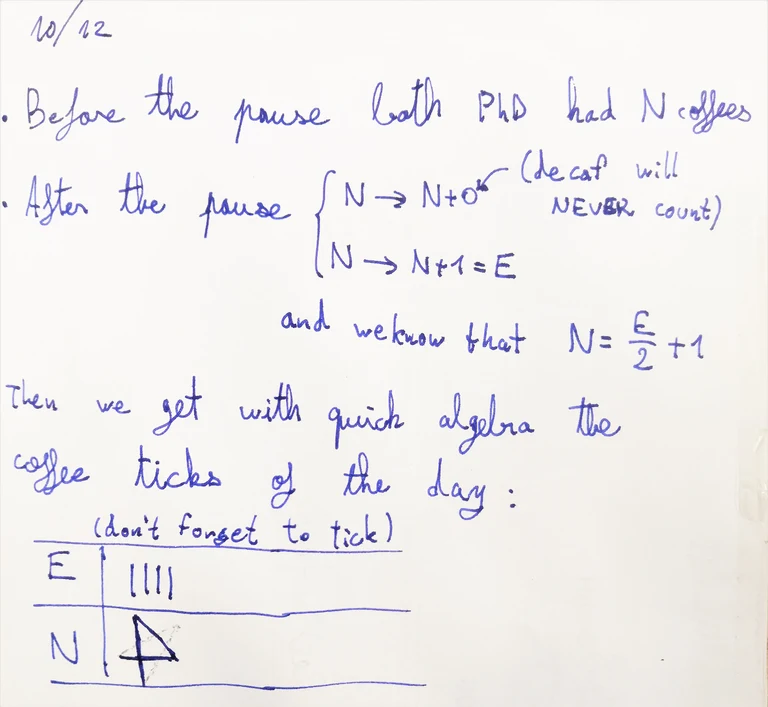 10/12
• Before the pause both PhD had N coffees
• After the pause { N → N+0 (decaf will NEVER count)
N → N+1 = E
and we know that N = E/2 + 1
Then we get with quick algebra the
coffee ticks of the day :
(don't forget to tick)
E | ||||
N |